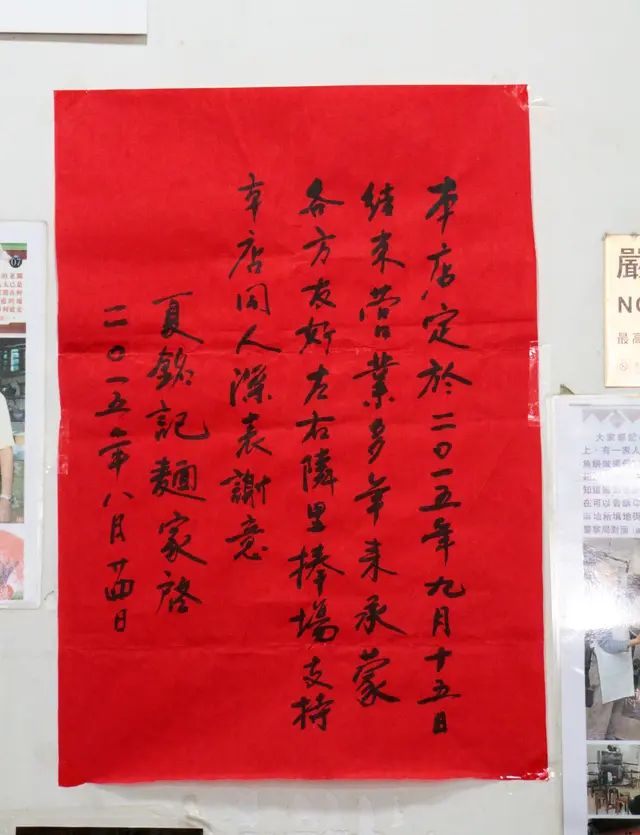 本店定於二〇一五年九月十五日
結束营業多年来承蒙
各方友好左右隣里捧場支持
本店同人深表謝意
夏銘記麵家啓
二〇一五年八月廿四日
07
NO
最高
上，有一家人